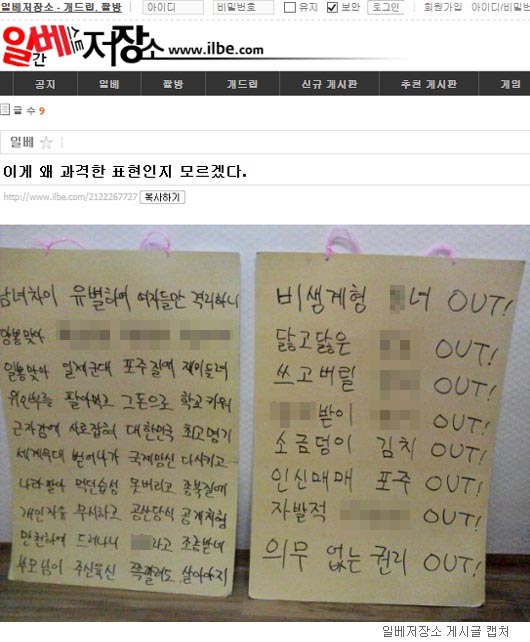 일베저장소 - 개드립, 짤방 아이디 비밀번호 유지 보안 로그인 회원가입 아이디/비밀번
일간베스트저장소 www.ilbe.com
공지 일베 짤방 개드립 신규 게시판 추천 게시판 게임
글 수 9
일베
이게 왜 과격한 표현인지 모르겠다.
http://www.ilbe.com/2122267727 복사하기
남녀차이 유별하여 여자들만 격리하니
양봉맞아
일봉맞아 일제군대 포주질에 재미들려
위안부를 팔아먹고 그돈으로 학교키워
군자금에 사로잡혀 대한민국 최고명기
세계무대 벋어나가 국제망신 다시키고
나라팔아 먹던습성 못버리고 종북질에
개인자유 무시하고 공산당식 공개처형
만천하에 드러나니 라고 조롱받네
부모님이 주신육신 쪽팔려도 살아야지
비생계형 녀 OUT!
닳고닳은 OUT!
쓰고버릴 OUT!
받이 OUT!
소금덩이 김치 OUT!
인신매매 포주 OUT!
자발적 OUT!
의무 없는 권리 OUT!
일베저장소 게시글 캡처